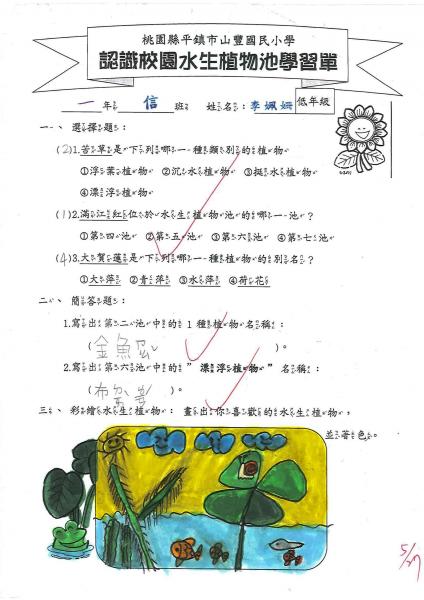 桃園縣平鎮市山豐國民小學
認識校園水生植物池學習單
一年信班 姓名：李姵妍 低年級
一、選擇題：
(2)1.苦草是下列哪一種類別的植物
①浮葉植物 ②沉水植物 ③挺水植物
④漂浮植物
(1)2.滿江紅位於水生植物池的哪一池？
①第四池 ②第五池 ③第六池 ④第七池
(4)3.大賀蓮是下列哪一種植物的別名？
①大萍 ②青萍 ③水萍 ④荷花
二、簡答題：
1.寫出第二池中的1種植物名稱：
(金魚ㄗㄠˇ)。
2.寫出第六池中的"漂浮植物"名稱：
(布ㄉㄞˋ)。
三、彩繪水生植物：畫出你喜歡的水生植物，
並著色。
5/27